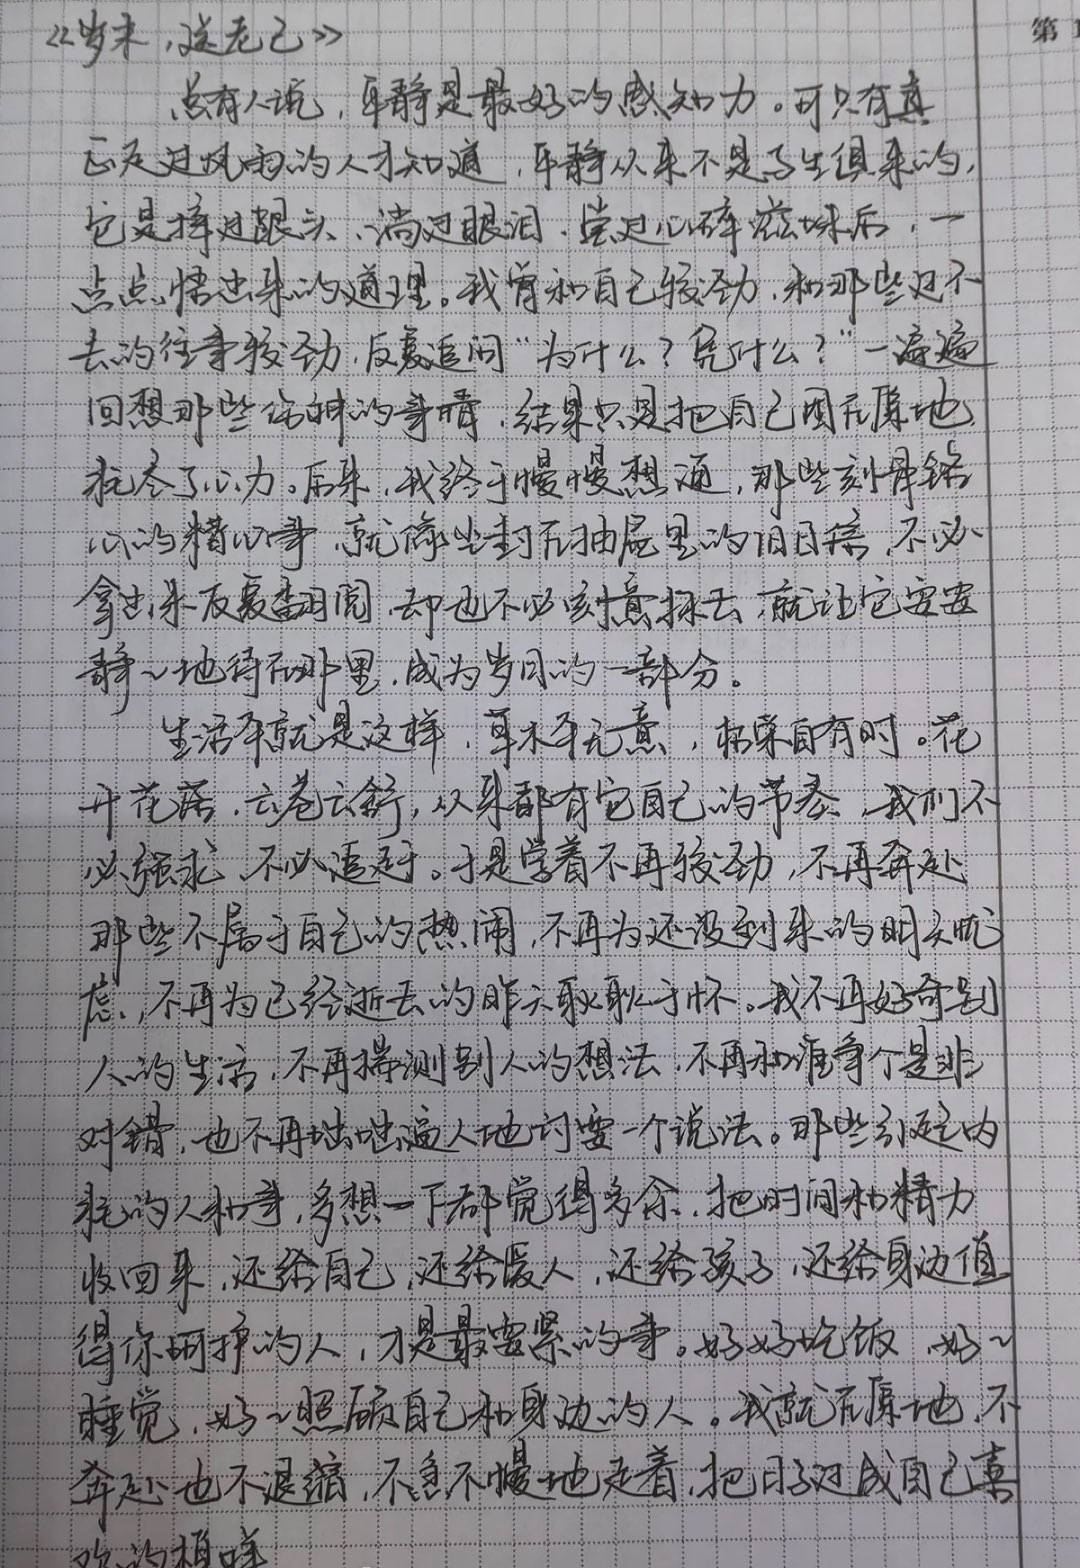 《岁末,送老己》
第1
总有人说,平静是最好的感知力。可只有真
正走过风雨的人才知道,平静从来不是与生俱来的,
它是摔过跟头、淌过眼泪、尝过心碎滋味后,一
点点悟出来的道理。我曾和自己较劲,和那些过不
去的往事较劲,反复追问“为什么?凭什么?”一遍遍
回想那些伤神的事情,结果只是把自己困在原地,
耗尽了心力。后来,我终于慢慢想通,那些刻骨铭
心的糟心事,就像尘封在抽屉里的旧日子,不必
拿出来反复翻阅,却也不必刻意抹去,就让它安安
静~地待在那里,成为岁月的一部分。
生活本就是这样,草木本无意,枯荣自有时。花
开花落,云卷云舒,从来都有它自己的节奏,我们不
必强求,不必追赶。于是学着不再较劲,不再奔赴
那些不属于自己的热闹,不再为还没到来的明天忧
虑,不再为已经逝去的昨天耿耿于怀。我不再好奇别
人的生活,不再揣测别人的想法,不再和谁争个是非
对错,也不再咄咄逼人地讨要一个说法。那些引起内
耗的人和事,多想一下都觉得多余,把时间和精力
收回来,还给自己,还给爱人,还给孩子,还给身边值
得你呵护的人,才是最要紧的事。好好吃饭,好~
睡觉,好~照顾自己和身边的人。我就在原地,不
奔赴也不退缩,不急不慢地走着,把日子过成自己喜
欢的模样